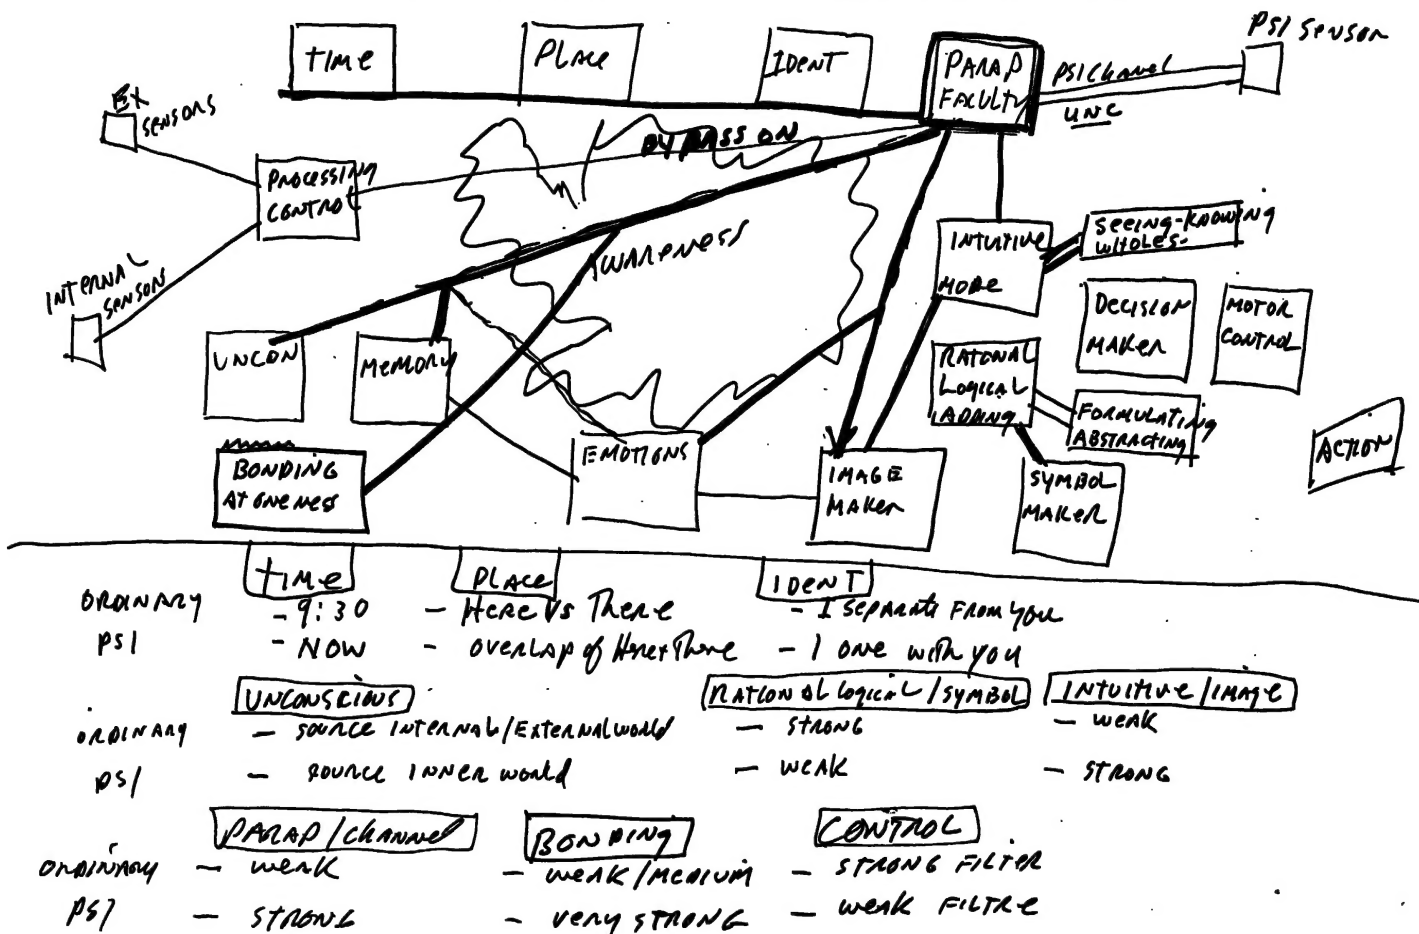 PSI SENSOR
TIME
PLACE
IDENT
PARAP
FACULTY
PSI CHANEL
UNC
EX
SENSORS
BY PASS ON
PROCESSING
CONTROL
AWARENESS
INTUITIVE
MODE
SEEING-KNOWING
WHOLES-
INTERNAL
SENSOR
DECISION
MAKER
MOTOR
CONTROL
UNCON
MEMORY
RATIONAL
LOGICAL
ADDING
FORMULATING
ABSTRACTING
ACTION
BONDING
AT ONENESS
EMOTIONS
IMAGE
MAKER
SYMBOL
MAKER
TIME PLACE IDENT
ORDINARY - 9:30 - HERE VS THERE - I SEPARATE FROM YOU
PSI - NOW - OVERLAP of HERE+THERE - I ONE WITH YOU
UNCONSCIOUS RATIONAL LOGICAL/SYMBOL INTUITIVE/IMAGE
ORDINARY - SOURCE INTERNAL/EXTERNAL WORLD - STRONG - WEAK
PSI - SOURCE INNER WORLD - WEAK - STRONG
PARAP/CHANNEL BONDING CONTROL
ORDINARY - WEAK - WEAK/MEDIUM - STRONG FILTER
PSI - STRONG - VERY STRONG - WEAK FILTRE